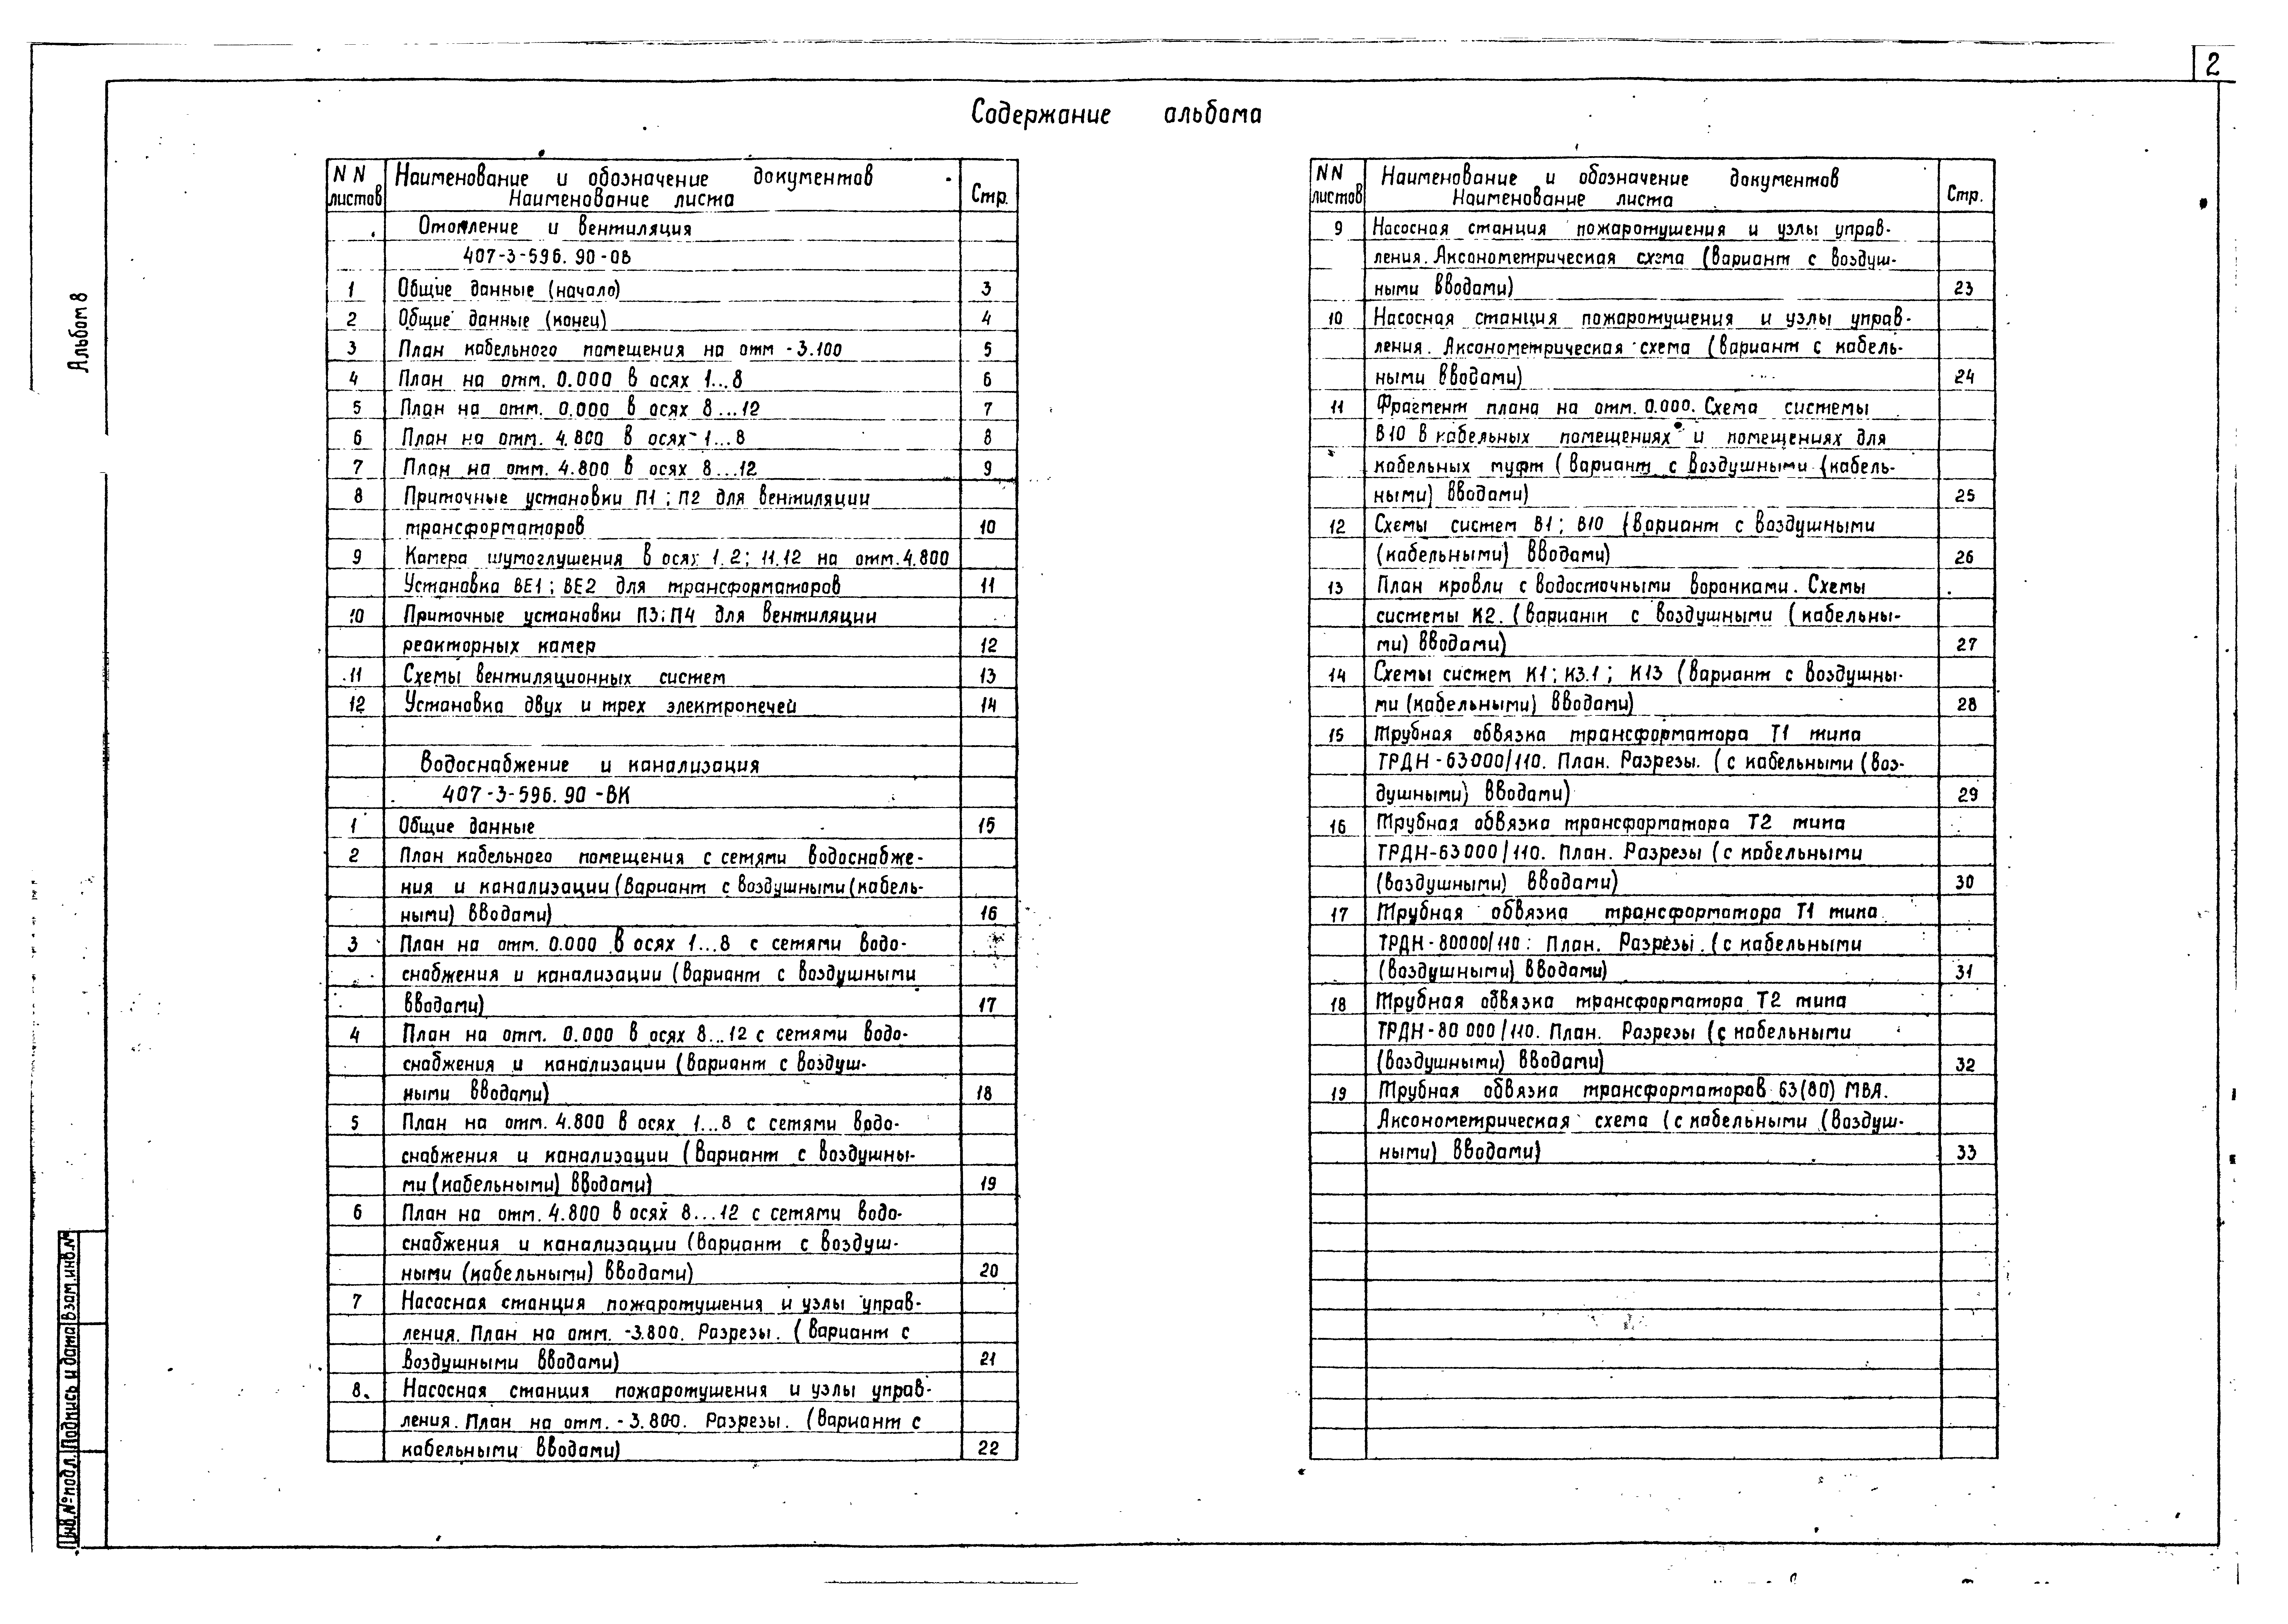 2
Содержание альбома
Альбом 8
NN листов
Наименование и обозначение документов
Наименование листа
Стр.
Отопление и вентиляция
407-3-596.90-ОВ
1 Общие данные (начало) 3
2 Общие данные (конец) 4
3 План кабельного помещения на отм -3.100 5
4 План на отм. 0.000 в осях 1...8 6
5 План на отм. 0.000 в осях 8...12 7
6 План на отм. 4.800 в осях 1...8 8
7 План на отм. 4.800 в осях 8...12 9
8 Приточные установки П1; П2 для вентиляции
трансформаторов 10
9 Камера шумоглушения в осях 1.2; 11.12 на отм. 4.800
Установка ВЕ1; ВЕ2 для трансформаторов 11
10 Приточные установки П3; П4 для вентиляции
реакторных камер 12
11 Схемы вентиляционных систем 13
12 Установка двух и трех электропечей 14
Водоснабжение и канализация
407-3-596.90-ВК
1 Общие данные 15
2 План кабельного помещения с сетями водоснабже-
ния и канализации (Вариант с воздушными (кабель-
ными) вводами) 16
3 План на отм. 0.000 в осях 1...8 с сетями водо-
снабжения и канализации (Вариант с воздушными
вводами) 17
4 План на отм. 0.000 в осях 8...12 с сетями водо-
снабжения и канализации (Вариант с воздуш-
ными вводами) 18
5 План на отм. 4.800 в осях 1...8 с сетями водо-
снабжения и канализации (Вариант с воздушны-
ми (кабельными) вводами) 19
6 План на отм. 4.800 в осях 8...12 с сетями водо-
снабжения и канализации (Вариант с воздуш-
ными (кабельными) вводами) 20
7 Насосная станция пожаротушения и узлы управ-
ления. План на отм. -3.800. Разрезы. (Вариант с
воздушными вводами) 21
8. Насосная станция пожаротушения и узлы управ-
ления. План на отм. -3.800. Разрезы. (Вариант с
кабельными вводами) 22
NN листов
Наименование и обозначение документов
Наименование листа
Стр.
9 Насосная станция пожаротушения и узлы управ-
ления. Аксонометрическая схема (Вариант с воздуш-
ными вводами) 23
10 Насосная станция пожаротушения и узлы управ-
ления. Аксонометрическая схема (Вариант с кабель-
ными вводами) 24
11 Фрагмент плана на отм. 0.000. Схема системы
В10 в кабельных помещениях и помещениях для
кабельных муфт (Вариант с воздушными (кабель-
ными) вводами) 25
12 Схемы систем В1; В10 (Вариант с воздушными
(кабельными) вводами) 26
13 План кровли с водосточными воронками. Схемы
системы К2. (Вариант с воздушными (кабельны-
ми) вводами) 27
14 Схемы систем К1; К3.1; К13 (Вариант с воздушны-
ми (кабельными) вводами) 28
15 Трубная обвязка трансформатора Т1 типа
ТРДН-63000/110. План. Разрезы. (с кабельными (воз-
душными) вводами) 29
16 Трубная обвязка трансформатора Т2 типа
ТРДН-63000/110. План. Разрезы (с кабельными
(воздушными) вводами) 30
17 Трубная обвязка трансформатора Т1 типа
ТРДН-80000/110. План. Разрезы. (с кабельными
(воздушными) вводами) 31
18 Трубная обвязка трансформатора Т2 типа
ТРДН-80 000/110. План. Разрезы (с кабельными
(воздушными) вводами) 32
19 Трубная обвязка трансформаторов 63(80) МВА.
Аксонометрическая схема (с кабельными (воздуш-
ными) вводами) 33
Инв.№ подл. Подпись и дата Взам.инв.№